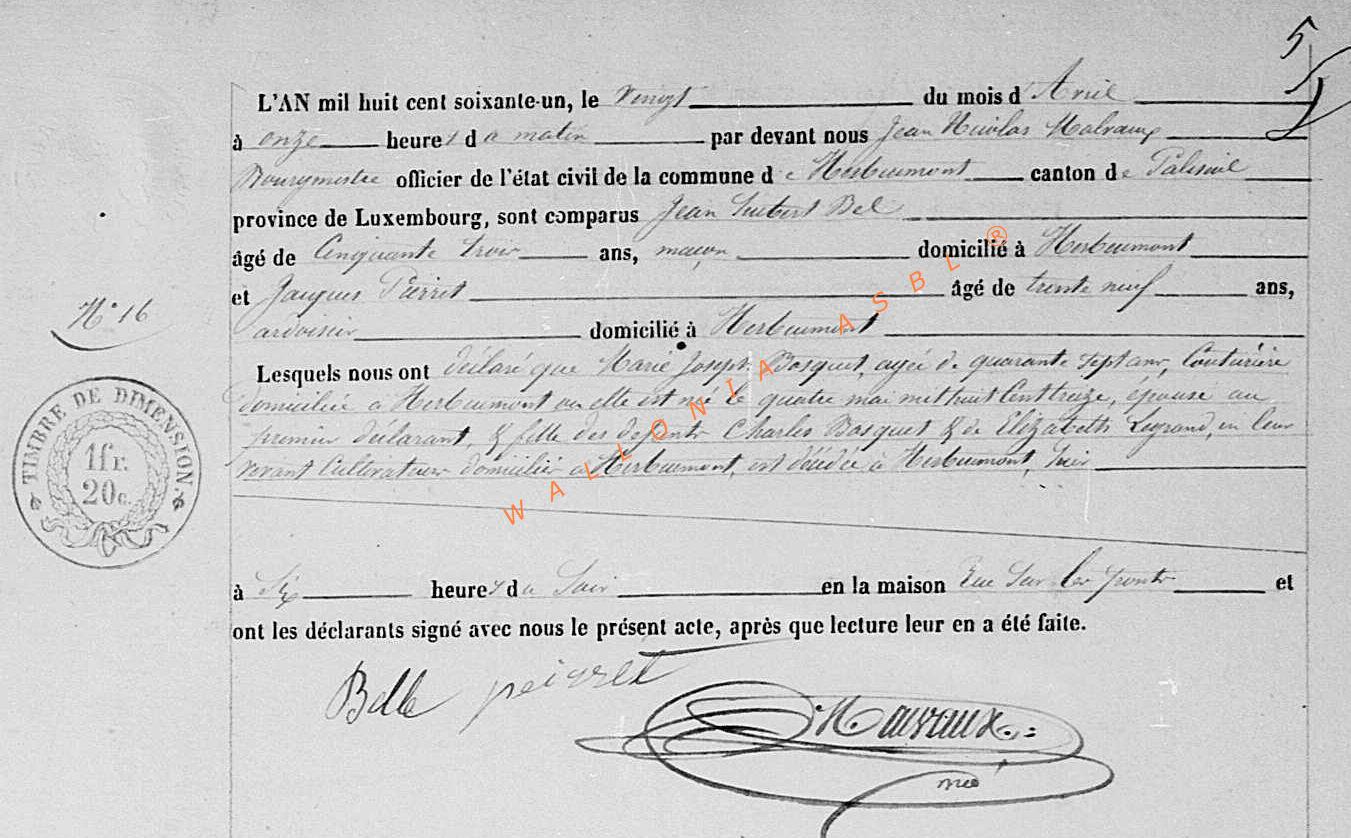 5
L'AN mil huit cent soixante-un, le Vingt du mois d'Avril
à onze heures du matin par devant nous Jean Nicolas Malvaux
Bourgmestre officier de l'état civil de la commune de Herbeumont canton de Paliseul
province de Luxembourg, sont comparus Jean Hubert Bel
âgé de Cinquante trois ans, maçon domicilié à Herbeumont
et Jacques Pierret âgé de trente neuf ans,
ardoisier domicilié à Herbeumont
N° 16
Lesquels nous ont déclaré que Marie Joseph Bosquet, agée de quarante sept ans, Couturière
domiciliée a Herbeumont ou elle est née le quatre mai mil huit Cent treize, épouse au
premier déclarant, & fille des defunts Charles Bosquet & de Elizabeth Legrand, en leur
vivant Cultivateurs domiciliés a Herbeumont, est décédée a Herbeumont, hier
à Six heures du Soir en la maison Rue Sur les ponts et
ont les déclarants signé avec nous le présent acte, après que lecture leur en a été faite.
Belle peirret
Malvaux
TIMBRE DE DIMENSION.
1fr.
20c.
WALLONIA ASBL ®